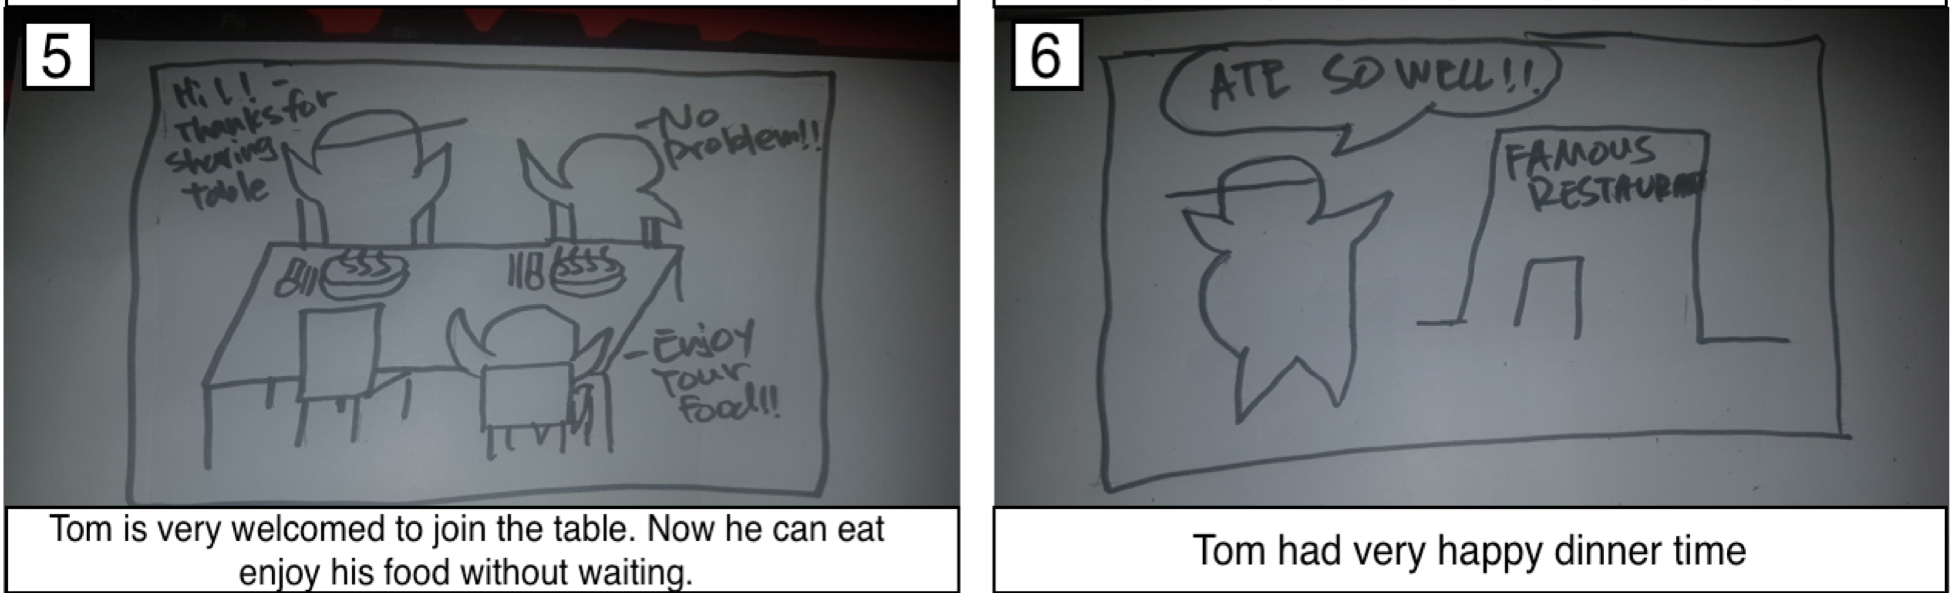 5
Hi!! -
Thanks for
sharing
table
- No
problem!!
- Enjoy
Your
Food!!
Tom is very welcomed to join the table. Now he can eat
enjoy his food without waiting.
6
ATE SO WELL!!
FAMOUS
RESTAURANT
Tom had very happy dinner time